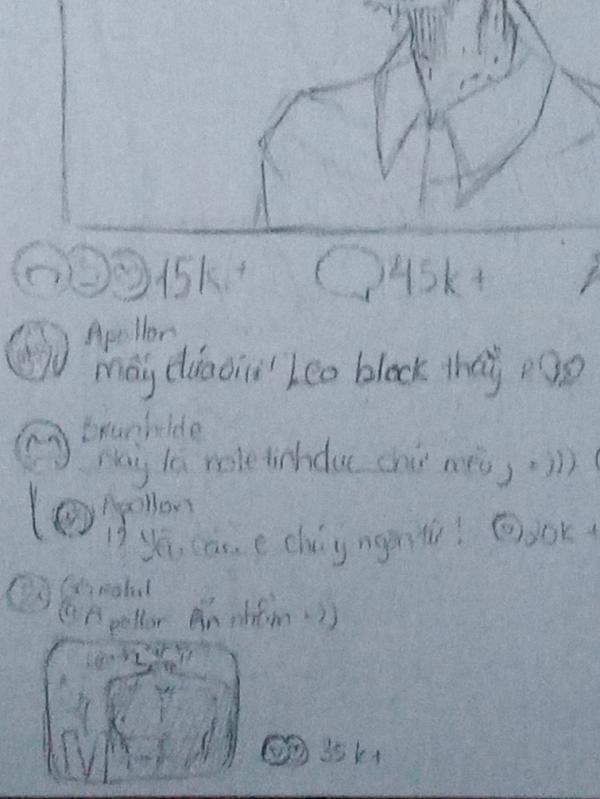 15k+ 45k+
Apollon
mấy đứa ơiii! Leo block thầy rồi
Brunhilde
này là nole tinhduc chứ mều, =)))
Apollon
!? Yêu cầu e chú ý ngôn từ! 20k+
@Apollon Ấn nhầm =))
35k+